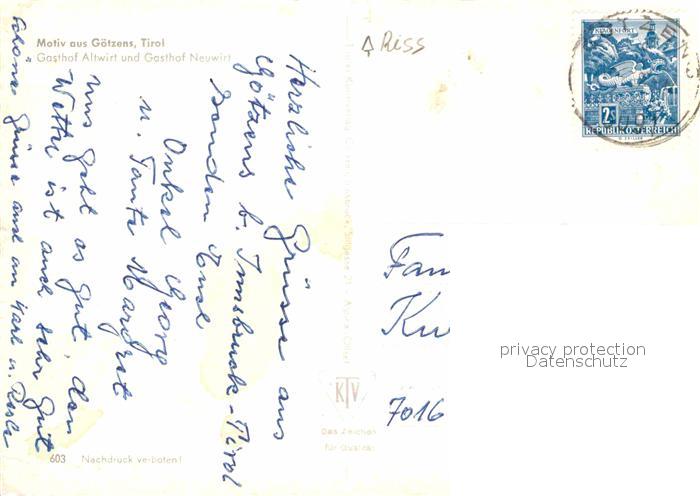 Motiv aus Götzens, Tirol
Gasthof Altwirt und Gasthof Neuwirt
Herzliche Grüsse aus
Götzens b. Innsbruck-Tirol
senden Euch
Onkel Georg
u. Tante Margret
Uns geht es gut, das
Wetter ist auch sehr gut
Schöne Grüsse auch an Karl u.
603 Nachdruck verboten!
KTV
Das Zeichen
für Qualität
Riss
GÖTZENS
2 S
REPUBLIK ÖSTERREICH
Fam
7016
privacy protection
Datenschutz